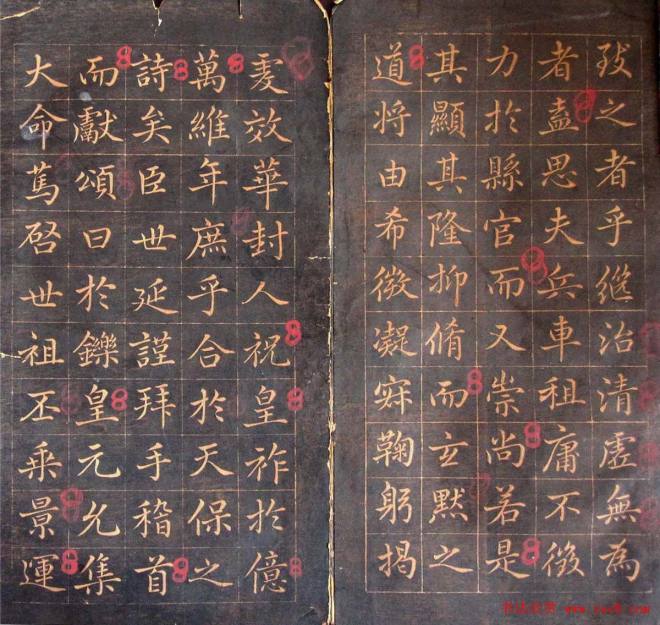 致之者乎継治清虛無為
者盍思夫兵車祖庸不後
力於縣官而又崇尚若是
其顯其隆抑脩而玄默之
道將由希微凝寂鞠躬揭
虔效華封人祝皇祚於億
萬維年庶乎合於天保之
詩矣臣世延謹拜手稽首
而獻頌曰於鑠皇元允集
大命篤啓世祖丕乘景運
书法欣赏 www.yac8.com